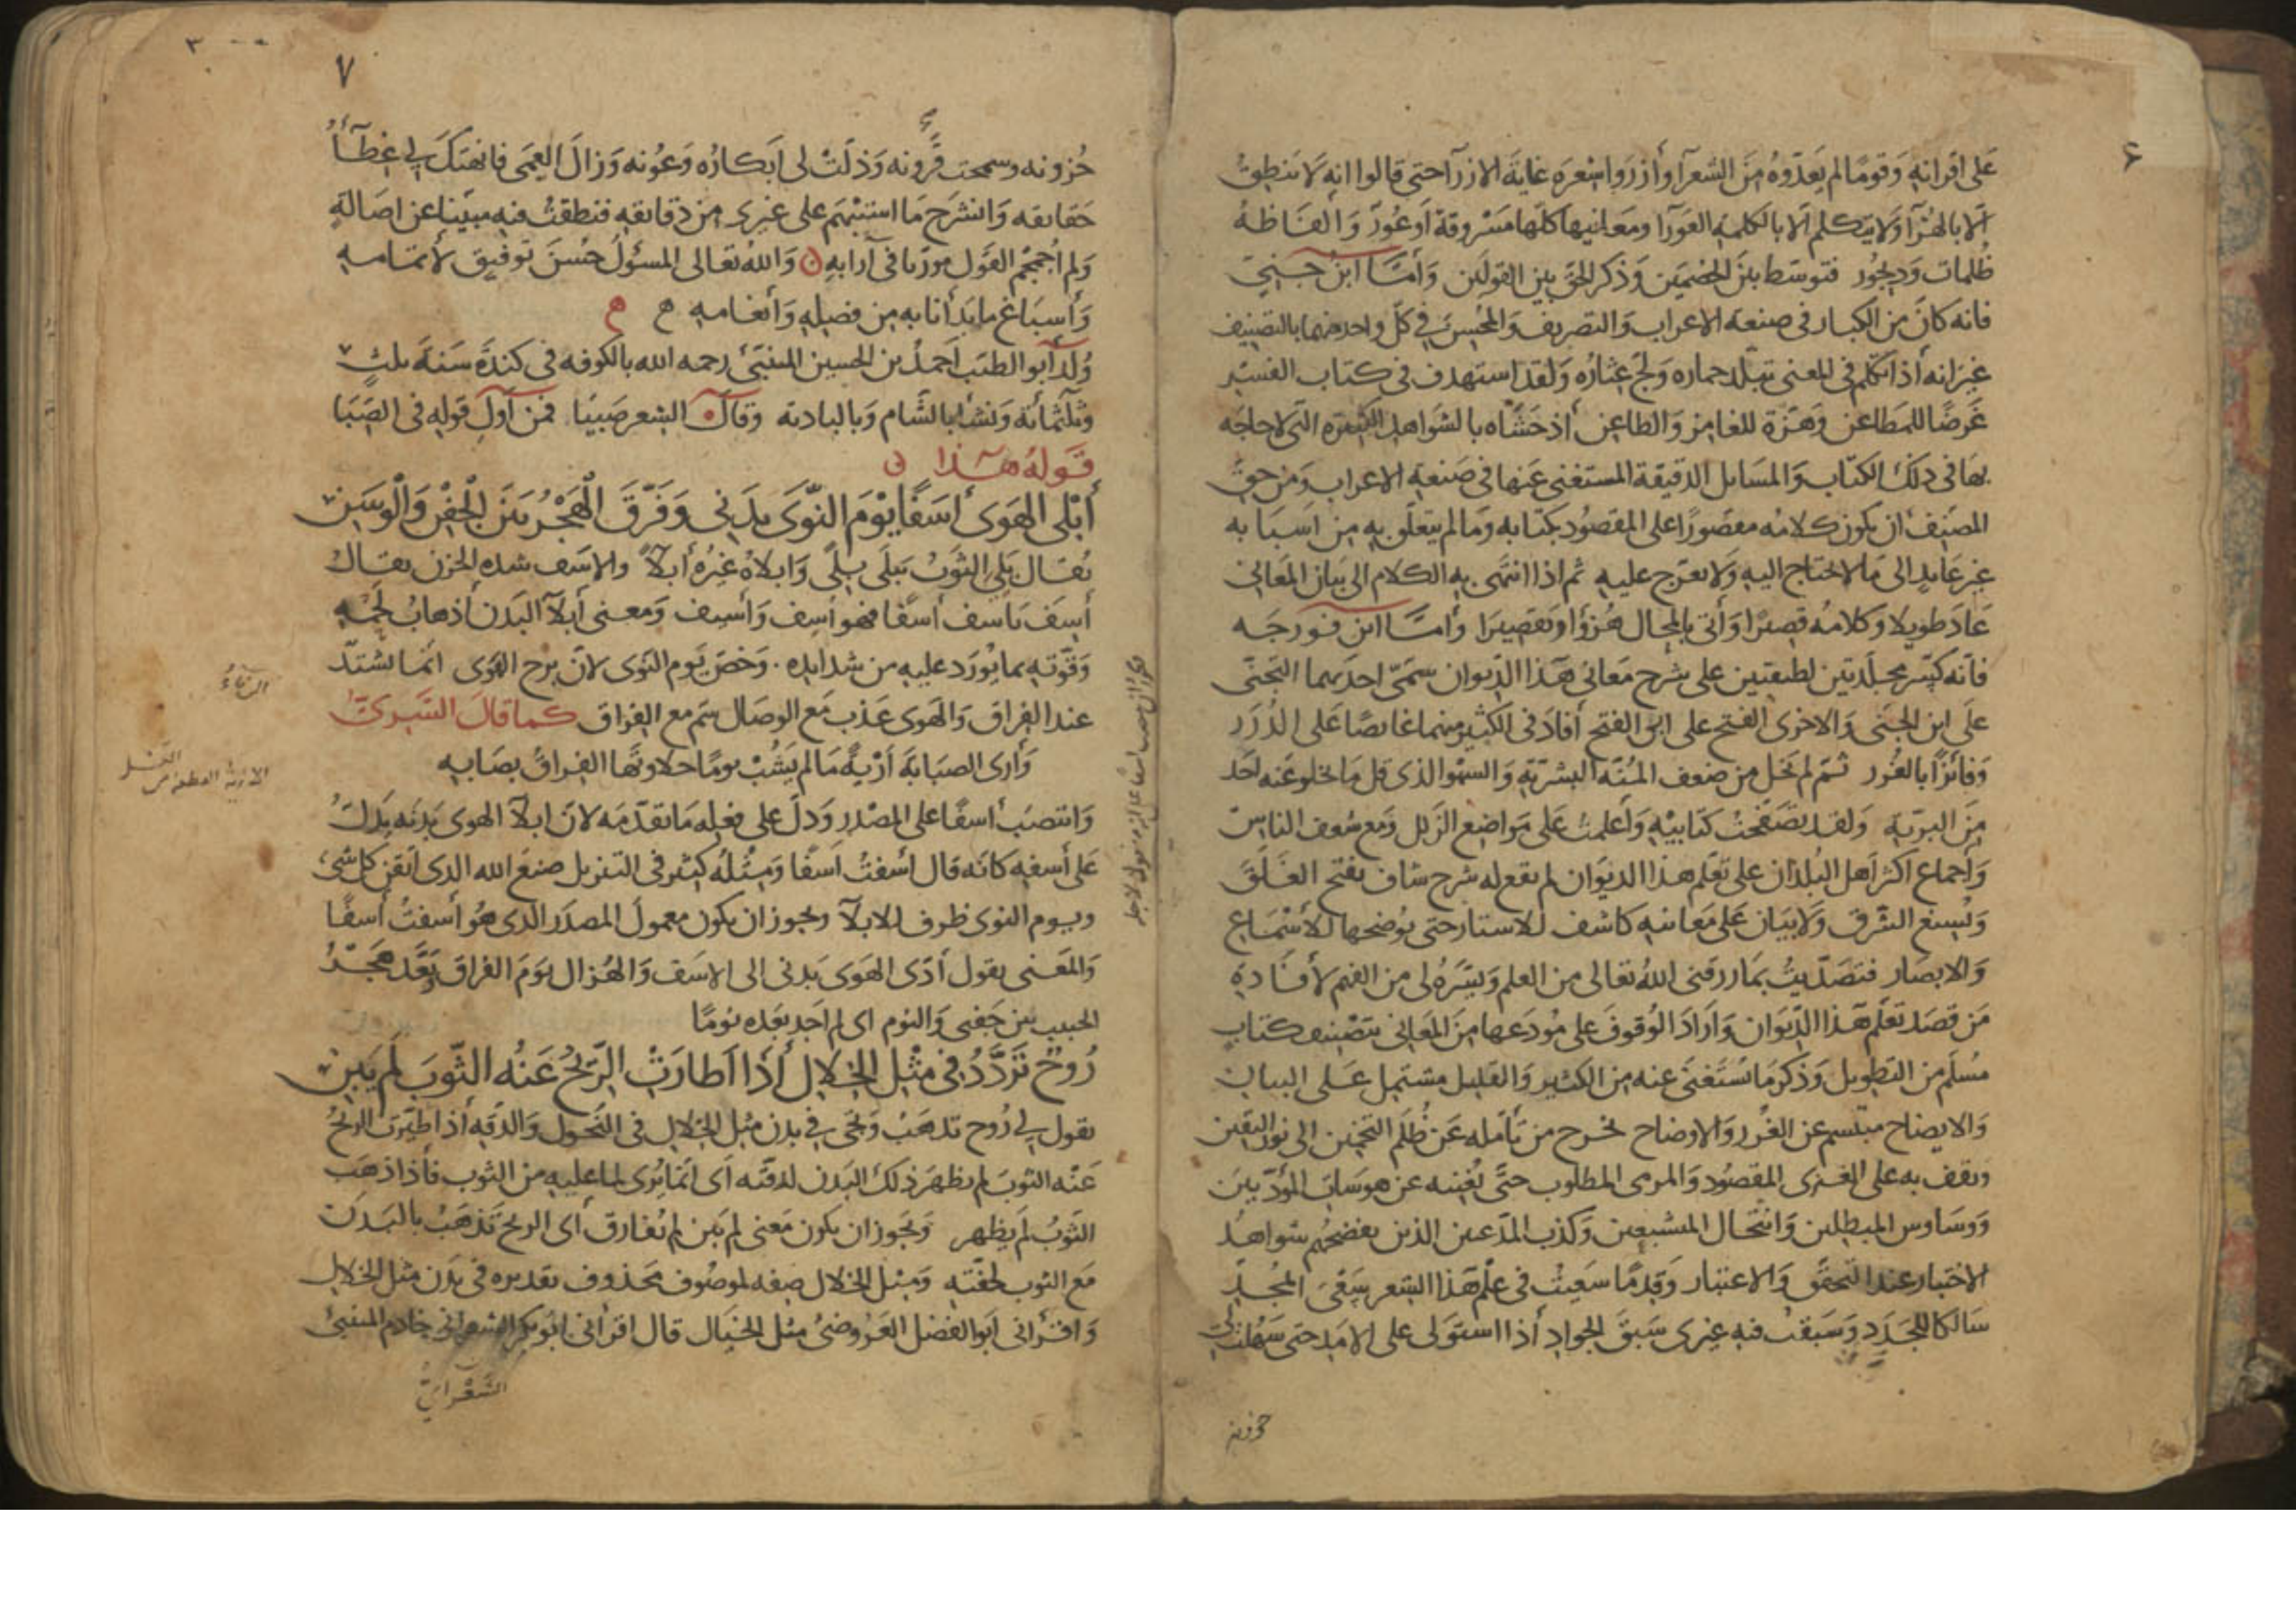 على اقرانه وقومًا لم يعدّوه من الشعرآ وأزروا بشعره غاية الازرآ حتى قالوا انه لا ينطق
الا بالهرآ ولا يتكلم الا بالكلمة العورآ ومعانيها كلها مسروقة أو عور وألفاظه
ظلمات وديجور فتوسط بين الخصمين وذكر الحق بين القولين وأمّا ابن جني
فانه كان من الكبار في صنعة الاعراب والتصريف والمحسنين في كل واحد منهما بالتصنيف
غير انه أذا تكلم في المعنى تبلد حماره ولج عثاره ولقد استهدف في كتاب الفسر
غرضًا للمطاعن ونهزة للغامز والطاعن أذ حشاه بالشواهد الكثيرة التي لا حاجه
بها في ذلك الكتاب والمسايل الدقيقة المستغنى عنها في صنعة الاعراب ومن حق
المصنف ان يكون كلامه مقصورًا على المقصود بكتابه وما لم يتعلق به من اسبابه
غير عادل الى ما لا يحتاج اليه ولا يعرّج عليه ثم اذا انتهى به الكلام الى بيان المعاني
عاد طويل كلامه قصيرًا وأتى بالمحال هزؤًا وتقصيرا وأمّا ابن فورجه
فانه كتب مجلدتين لطيفتين على شرح معاني هذا الديوان سمّى احديهما التجنّى
على ابن الجنى والاخرى الفتح على ابى الفتح أفاد في الكثير منهما غائصًا على الدرر
وفائزًا بالغرر ثم لم يخل من ضعف المنّة البشريّة والسهو الذي قل ما يخلو عنه احد
من البريّة ولقد تصفحت كتابيه وأعلمت على مواضع الزلل ومع شعف الناس
وأجماع اكثر اهل البلدان على تعلم هذا الديوان لم يقع له شرح شاف يفتح الغلق
ويسيغ الشرق ولا بيان على معانيه كاشف للاستار حتى يوضحها للأسماع
والابصار فتصدّيت بما رزقني الله تعالى من العلم ويسّره لى من الفهم لأفادة
من قصد تعلم هذا الديوان واراد الوقوف على مودعها من المعاني بتصنيف كتاب
مسلم من التطويل وذكر ما يستغنى عنه من الكثير والقليل مشتمل على البيان
والايضاح مبتسم عن الغرر والاوضاح يخرج من تأمله عن ظلم التخمين الى نور اليقين
ويقف به على المغزى المقصود والمرمى المطلوب حتّى يغنيه عن هوسات المؤدّبين
ووساوس المبطلين وانتحال المتشبعين وكذب المدّعين الذين يفضحهم شواهد
الاختبار عند التحقق والاعتبار وقدمًا سعيت في علم هذا الشعر سعى المجدّ
سالكا للجدد وسبقت فيه غيرى سبق الجواد أذا استولى على الامد حتى سهلت لى
حزونه
٧
حزونه وسمحت قرونه وذلت لى ابكاره وعونه وزال العمى فانهتك لى غطآء
حقايقه وانشرح ما استبهم على غيرى من دقايقه فنطقت فيه مبينا عن اصالة
ولم أجمجم القول مورّيا في آرابه والله تعالى المسئول حسن توفيق لأتمامه
وأسباغ ما بدأنا به من فضله وأنعامه
ولد أبو الطيب أحمد بن الحسين المتنبّئ رحمه الله بالكوفه في كندة سنة ثلث
وثلثمائة ونشأ بالشام وبالبادية وقال الشعر صبيّا فمن أول قوله في الصبا
قوله هذا
أبلى الهوى أسفًا يوم النوى بدني وفرّق الهجر بين الجفن والوسن
يقال بلي الثوب يبلى بلًى وابلاه غيره أبلآءً والاسف شدة الحزن يقال
أسف يأسف أسفًا فهو أسف وأسيف ومعنى أبلآ البدن أذهاب لحمه
وقوّته بما يورد عليه من شدايده وخصّ يوم النوى لانّ برح الهوى انما يشتدّ
عند الفراق والهوى عذب مع الوصال سمّ مع الفراق كما قال السّرىّ الرّفآء
وأرى الصبابة أريةً ما لم يشب يومًا حلاوتها الفراق بصابه
وانتصب أسفًا على المصدر ودلّ على فعله ما تقدّمه لان ابلآ الهوى بدنه يدل
على أسفه كانه قال اسفت اسفًا ومثله كثير في التنزيل صنع الله الذي اتقن كل شئ
ويوم النوى ظرف للابلآ ويجوز ان يكون معمول المصدر الذي هو أسفت أسفًا
والمعنى يقول أدّى الهوى بدنى الى الاسف والهزال يوم الفراق وبعّد هجر
الحبيب بين جفنى والنوم اى لم اجد بعده نومًا
روح تردّد في مثل الخلال أذا اطارت الريح عنه الثوب لم يبن
يقول لي روح تذهب وتجى في بدن مثل الخلال في النحول والدقه أذا طيّرت الريح
عنه الثوب لم يظهر ذلك البدن لدقّته اى انما يرى لما عليه من الثوب فأذا ذهب
الثوب لم يظهر ويجوز ان يكون معنى لم يبن لم يفارق أى الريح تذهب بالبدن
مع الثوب لخفّته ومثل الخلال صفه لموصوف محذوف تقديره في بدن مثل الخلال
واقرأني ابو الفضل العروضىّ مثل الخيال قال اقرأنى ابو بكر الشعرانى خادم المتنبّئ
الشّعرانىّ